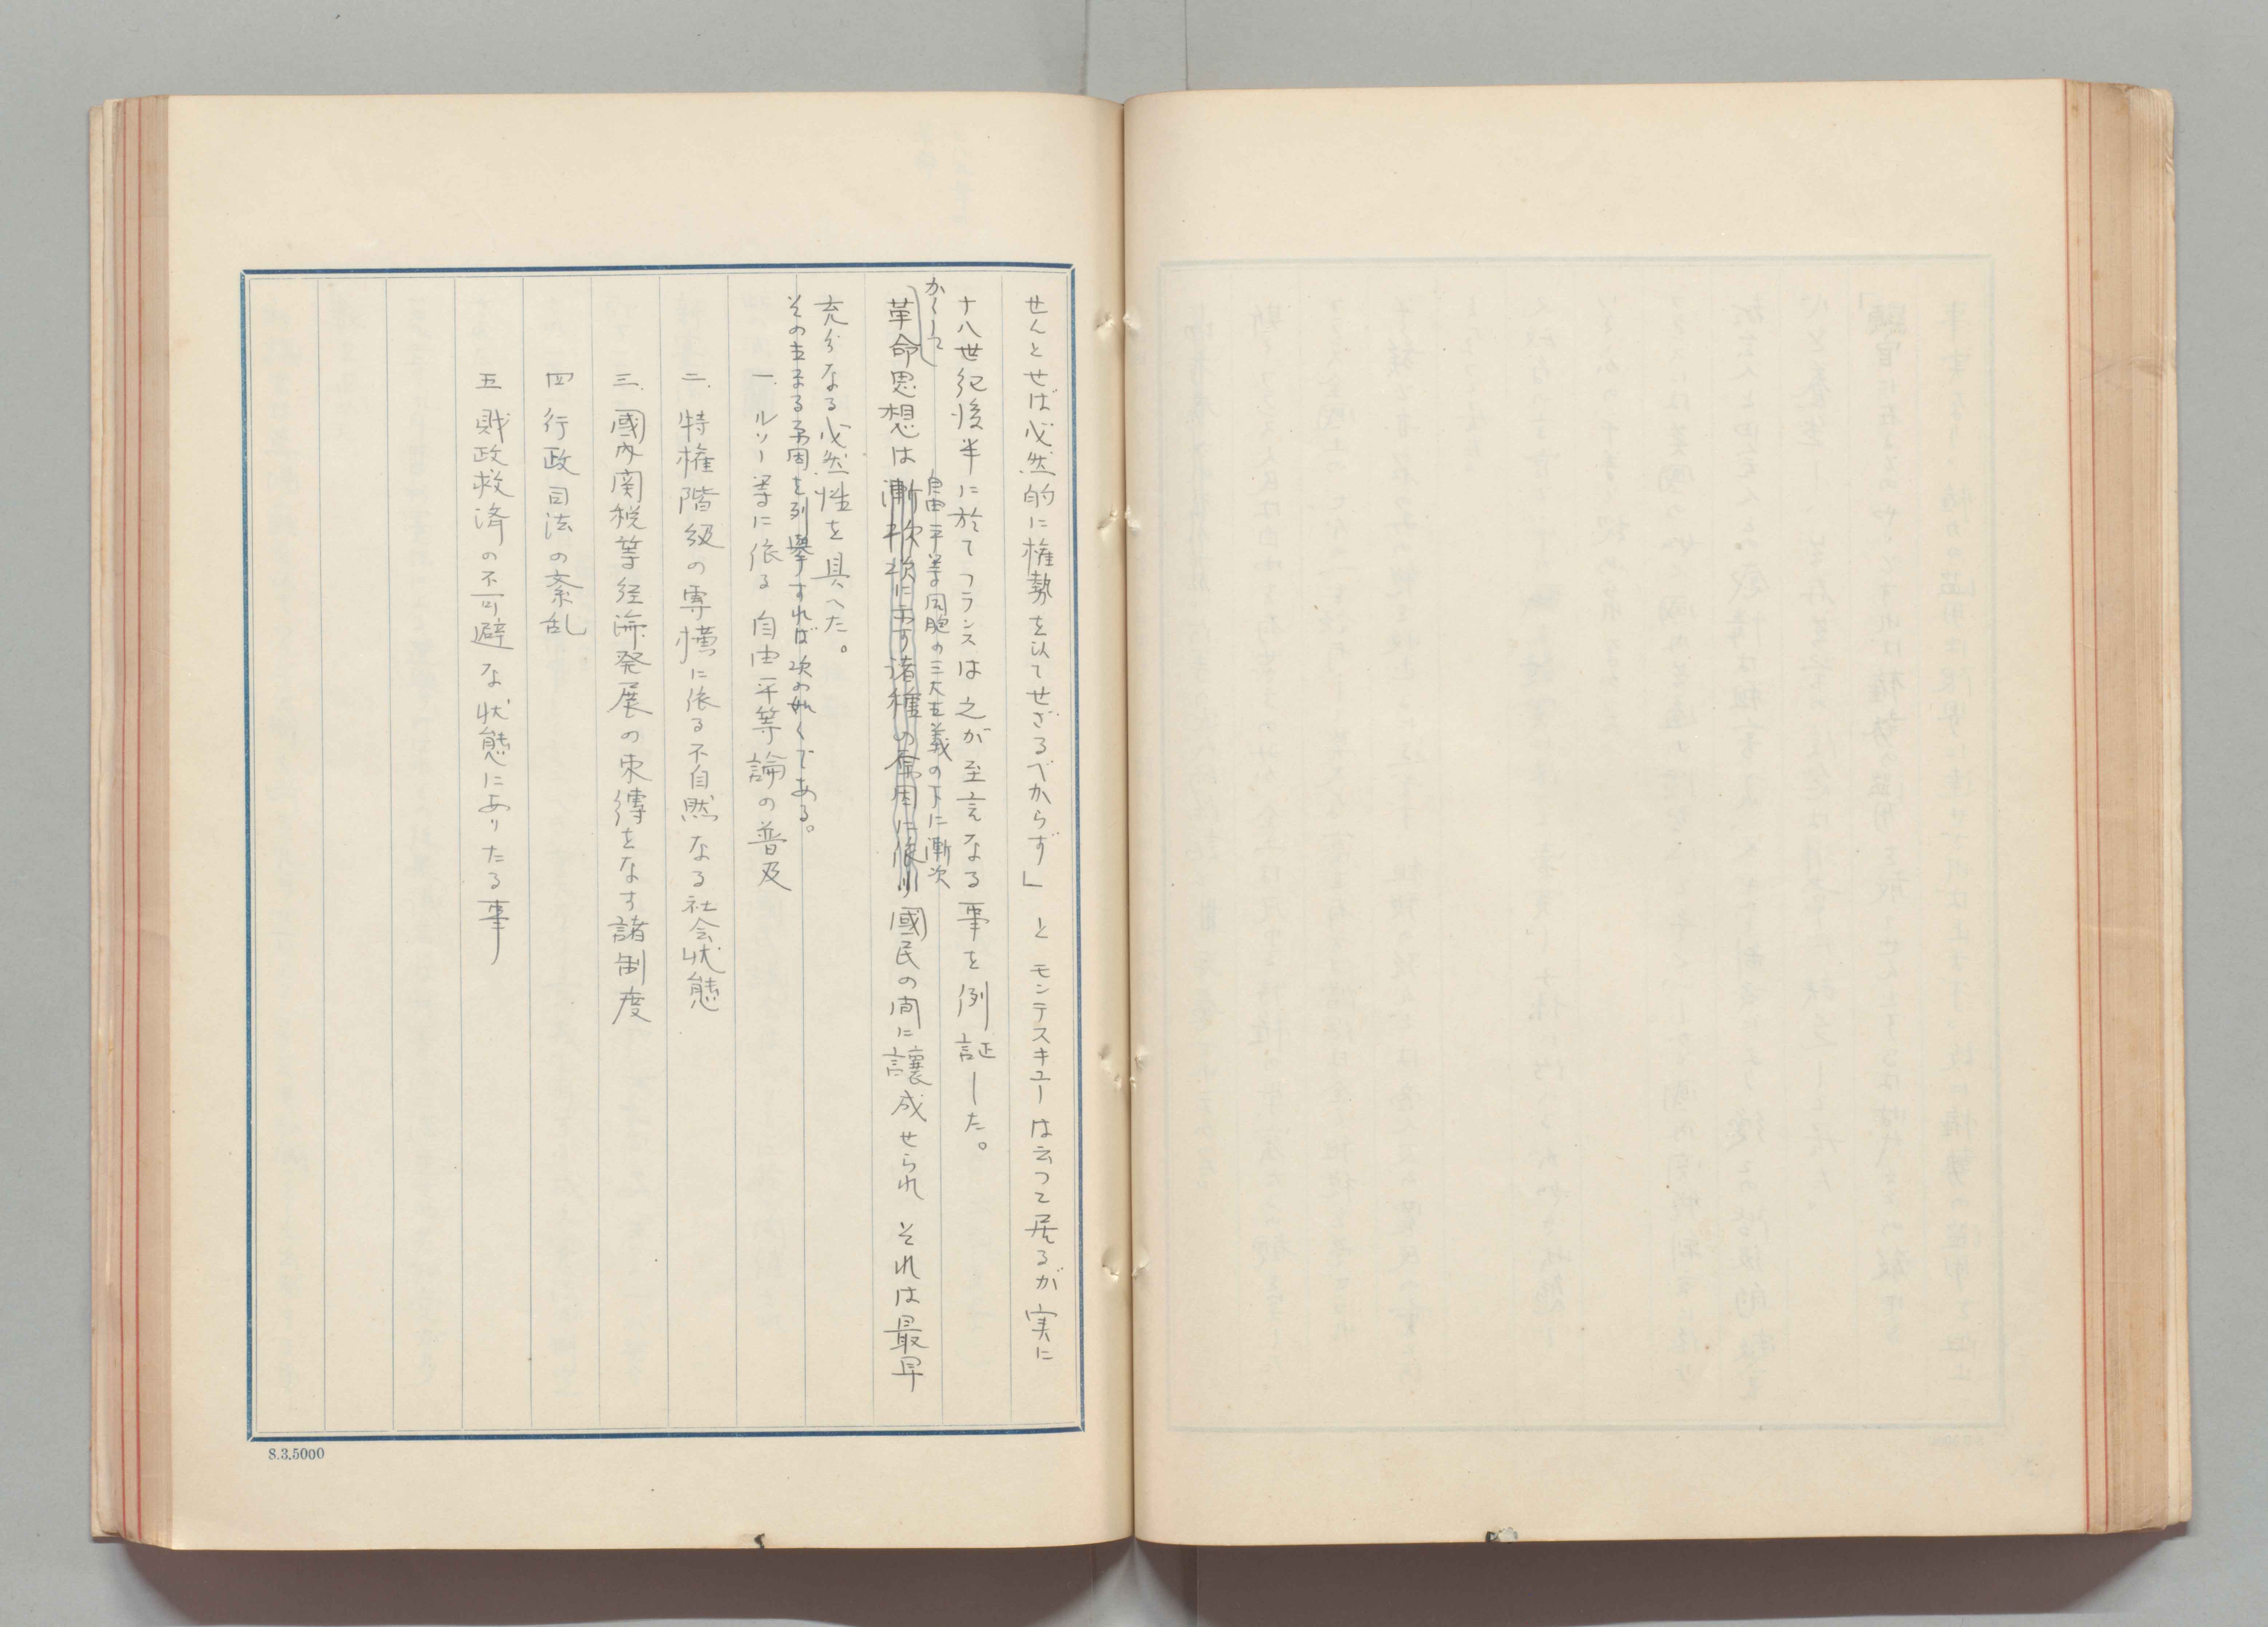 せんとせば必然的に権勢を以てせざるべからず」とモンテスキューは云つて居るが実に
十八世紀後半に於てフランスは之が至言なる事を例証した。
かくして
自由平等同胞の三大主義の下に漸次
革命思想は漸次次に示す諸種の原因に依り國民の間に譲成せられ それは最早
充分なる必然性を具へた。
その主なる原因を列擧すれば次の如くである。
一、ルソー等に依る自由平等論の普及
二、特権階級の専横に依る不自然なる社会状態
三、國内関税等経済発展の束縛をなす諸制度
四 行政司法の紊乱
五 財政救済の不可避な状態にありたる事
8.3.5000